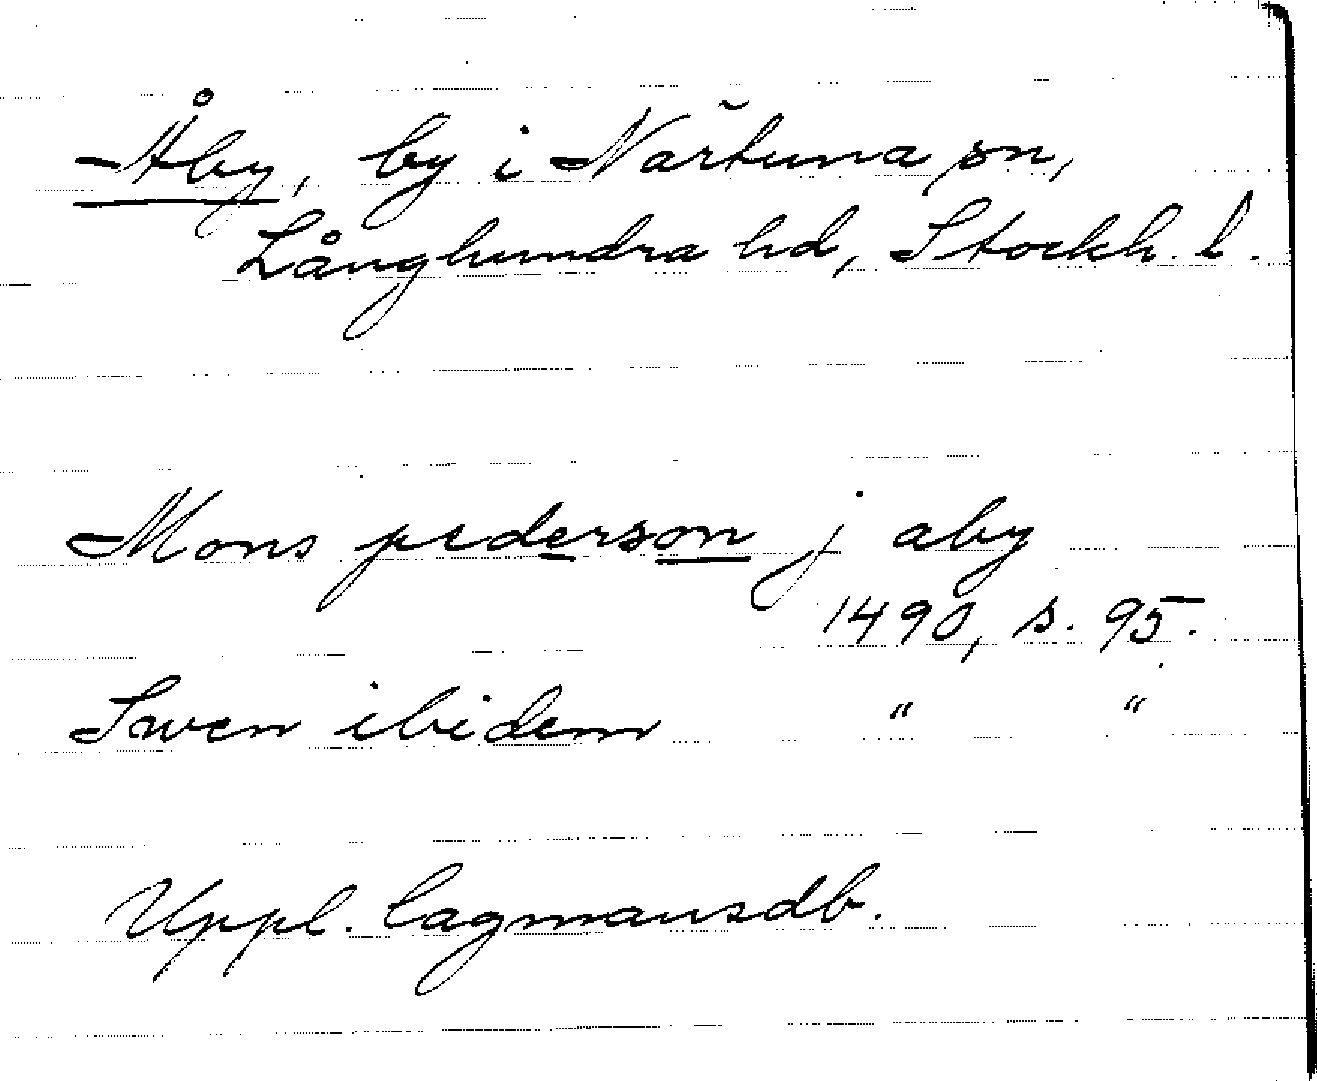 Åby, by i Närtuna sn,
Långhundra hd, Stockh. l.
Mons pederson j aby
1490, s. 95.
Swen ibidem " "
Uppl. lagmansdb.